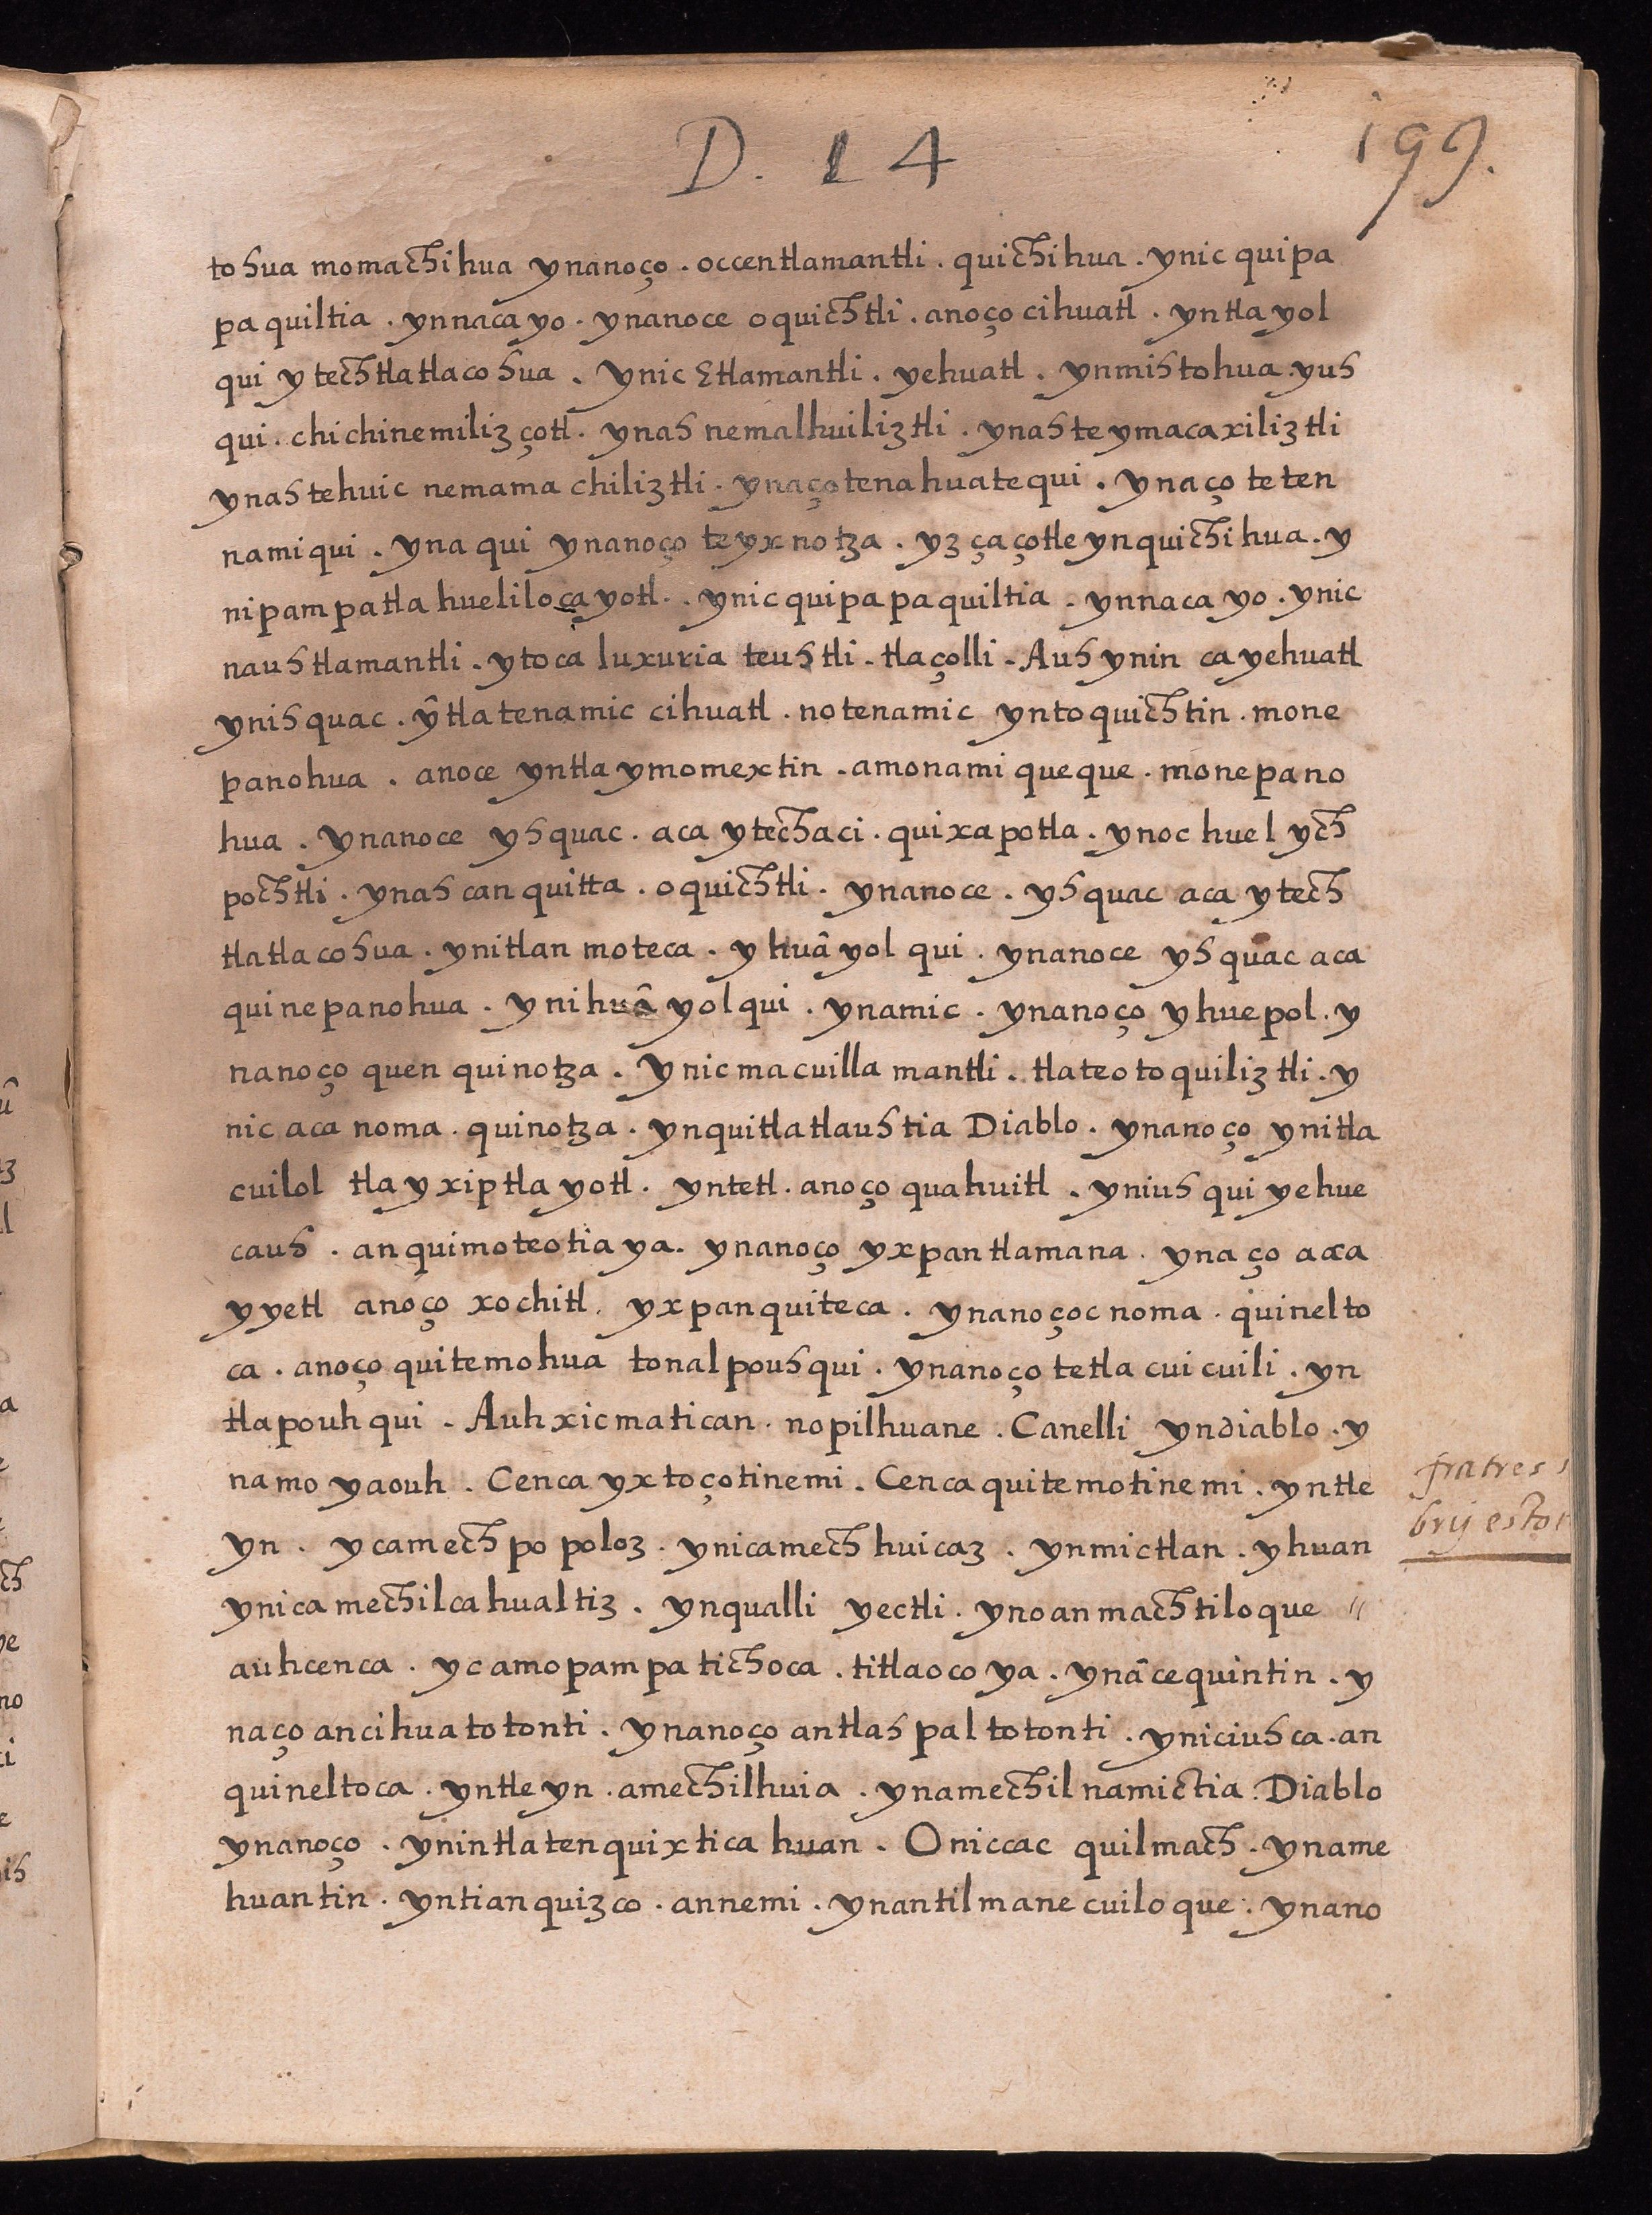 D. 14
199.
tohua momachihua ynanoço . occentlamantli . quichihua . ynic quipa
paquiltia . ynnacayo . ynanoce oquichtli . anoço cihuatl . yntla yol
qui ytechtlatlacohua . Ynic Etlamantli . yehuatl . ynmihtohua . yuh
qui . chichinemilizçotl . ynah nemalhuiliztli . ynah teymacaxiliztli
ynah tehuic nemamachiliztli . ynaço tenahuatequi . Ynaço teten
namiqui . yna qui ynanoço teyxnotza . yz çaçotle ynquichihua . y
nipampa tlahueliloçayotl . . ynic quipapaquiltia . ynnacayo . ynic
nauhtlamantli . ytoca luxuria teuhtli - tlaçolli - Auh ynin ca yehuatl
ynihquac . ŷtla tenamic cihuatl . no tenamic yntoquichtin . mone
panohua . anoce yntla ymomextin . amo namiqueque . monepano
hua . Ynanoce yhquac . aca ytechaci . quixapotla . ynoc huel ych
pochtli . ynah can quitta . oquichtli . ynanoce . yhquac aca ytech
tlatlacohua . ynitlan moteca . yhuâyolqui . ynanoce yhquac aca
quinepanohua . Ynihuâyolqui . ynamic . ynanoço yhuepol . y
nanoço quen quinotza . Ynic macuillamantli . tlateotoquiliztli . y
nic aca noma . quinotza . ynquitlatlauhtia Diablo . ynanoço ynitla
cuilol tlayxiptlayotl . yntetl . anoço quahuitl . yniuhqui yehue
cauh . anquimoteotiaya . ynanoço yxpan tlamana . ynaço aca
yyetl anoço xochitl . yxpan quiteca . ynanoçoc noma . quinelto
ca . anoço quitemohua tonalpouhqui . ynanoço tetlacuicuili . yn
tlapouhqui - Auh xicmatican . nopilhuane . Canelli yndiablo . y
namoyaouh . Cenca yxtoçotinemi . Cenca quitemotinemi . yntle
yn . yc amechpopoloz . ynic amechhuicaz . ynmictlan . yhuan
ynic amechilcahualtiz . ynqualli yectli . ynoanmachtiloque "
auh cenca . yc amopampa tichoca . titlaocoya . ynâcequintin . y
naço ancihuatotonti . Ynanoço antlahpaltotonti . yniciuhca . an
quineltoca . yntleyn . amechilhuia . ynamechilnamictia . Diablo
ynanoço . ynintlatenquixticahuan . Oniccac quilmach . yname
huantin . yntianquizco . annemi . ynantilmanecuiloque . ynano
fratres
brij estot